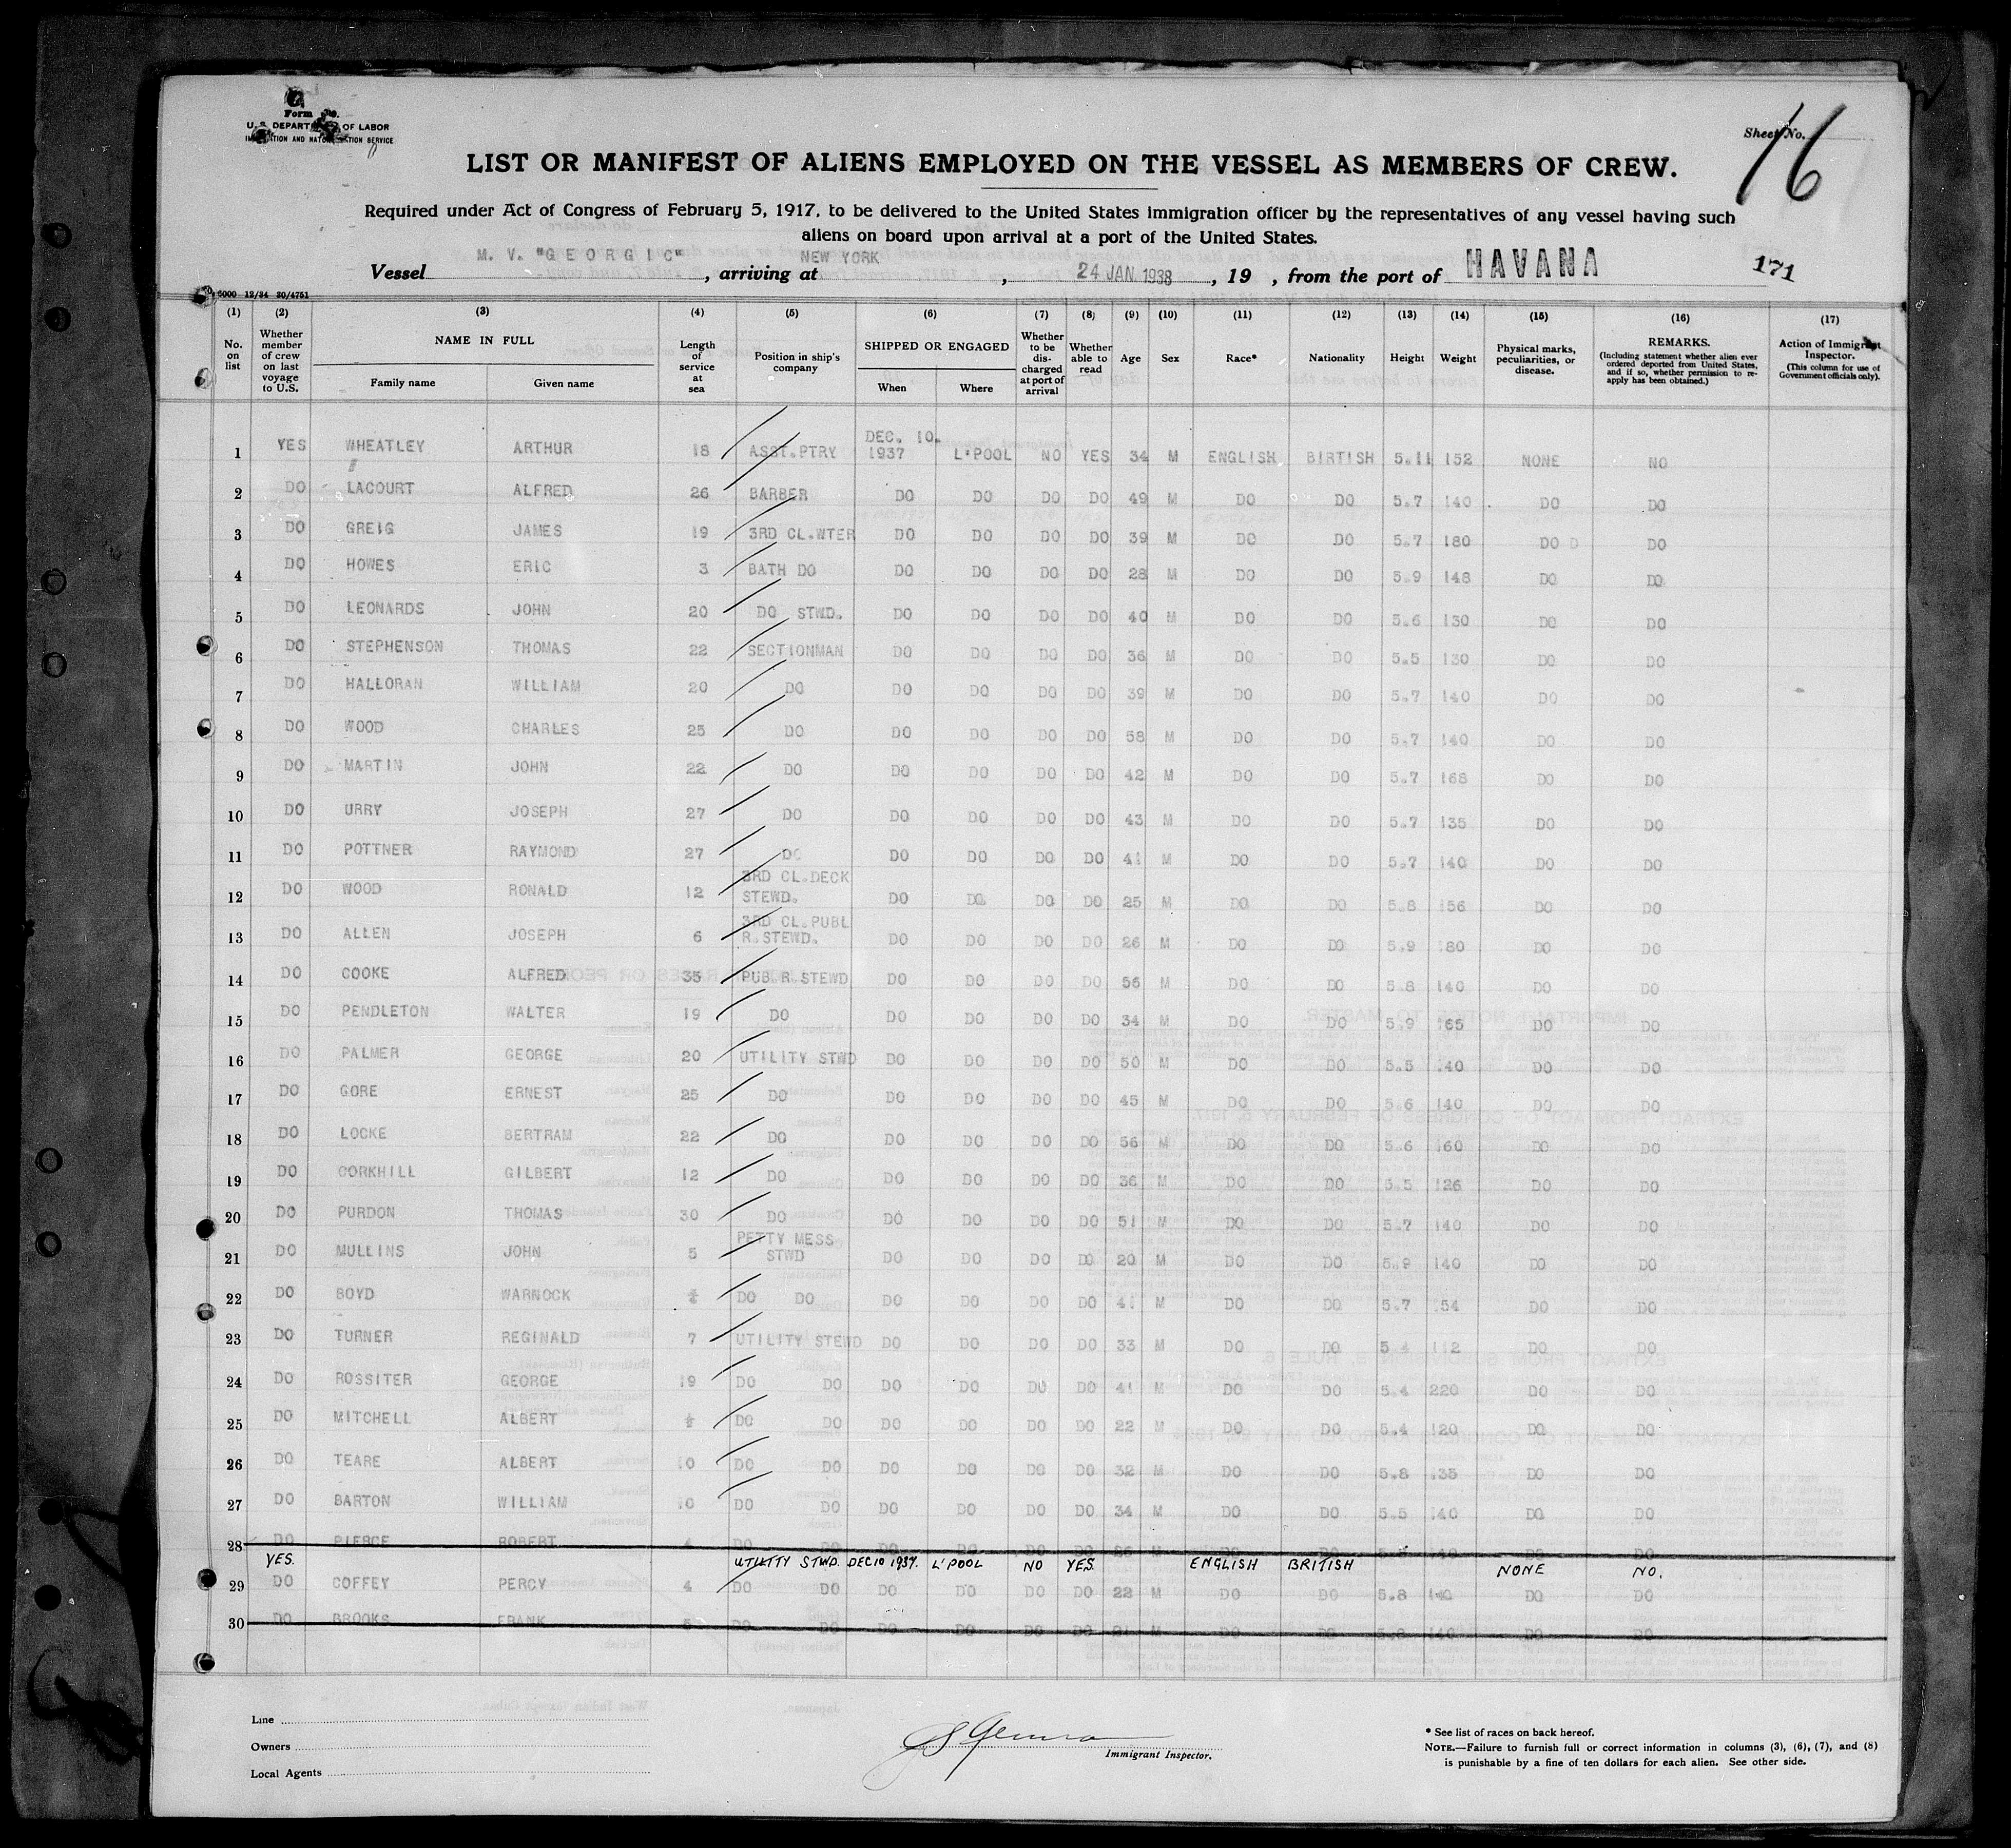 Form
U. S. DEPARTMENT OF LABOR
IMMIGRATION AND NATURALIZATION SERVICE
Sheet No.
16
LIST OR MANIFEST OF ALIENS EMPLOYED ON THE VESSEL AS MEMBERS OF CREW.
Required under Act of Congress of February 5, 1917, to be delivered to the United States immigration officer by the representatives of any vessel having such
aliens on board upon arrival at a port of the United States.
Vessel M. V. "GEORGIC", arriving at NEW YORK, 24 JAN 1938, 19 , from the port of HAVANA 171
6000 12/34 20/4751
(1) (2) (3) (4) (5) (6) (7) (8) (9) (10) (11) (12) (13) (14) (15) (16) (17)
No. on list
Whether member of crew on last voyage to U.S.
NAME IN FULL
Family name Given name
Length of service at sea
Position in ship's company
SHIPPED OR ENGAGED
When Where
Whether to be discharged at port of arrival
Whether able to read
Age
Sex
Race*
Nationality
Height
Weight
Physical marks, peculiarities, or disease.
REMARKS.
(Including statement whether alien ever ordered deported from United States, and if so, whether permission to re-apply has been obtained.)
Action of Immigrant Inspector.
(This column for use of Government officials only).
1 YES WHEATLEY ARTHUR 18 ASST.PTRY DEC. 10. 1937 L'POOL NO YES 34 M ENGLISH BIRTISH 5.11 152 NONE NO
2 DO LACOURT ALFRED 26 BARBER DO DO DO DO 49 M DO DO 5.7 140 DO DO
3 DO GREIG JAMES 19 3RD CL.WTER DO DO DO DO 39 M DO DO 5.7 180 DO D DO
4 DO HOWES ERIC 3 BATH DO DO DO DO DO 28 M DO DO 5.9 148 DO DO
5 DO LEONARDS JOHN 20 DO STWD. DO DO DO DO 40 M DO DO 5.6 130 DO DO
6 DO STEPHENSON THOMAS 22 SECTIONMAN DO DO DO DO 36 M DO DO 5.5 130 DO DO
7 DO HALLORAN WILLIAM 20 DO DO DO DO DO 39 M DO DO 5.7 140 DO DO
8 DO WOOD CHARLES 25 DO DO DO DO DO 58 M DO DO 5.7 140 DO DO
9 DO MARTIN JOHN 22 DO DO DO DO DO 42 M DO DO 5.7 168 DO DO
10 DO URRY JOSEPH 27 DO DO DO DO DO 43 M DO DO 5.7 135 DO DO
11 DO POTTNER RAYMOND 27 DO DO DO DO DO 41 M DO DO 5.7 140 DO DO
12 DO WOOD RONALD 12 3RD CL.DECK STEWD. DO DO DO DO 25 M DO DO 5.8 156 DO DO
13 DO ALLEN JOSEPH 6 3RD CL.PUBL R.STEWD. DO DO DO DO 26 M DO DO 5.9 180 DO DO
14 DO COOKE ALFRED 35 PUB.R.STEWD DO DO DO DO 56 M DO DO 5.8 140 DO DO
15 DO PENDLETON WALTER 19 DO DO DO DO DO 34 M DO DO 5.9 165 DO DO
16 DO PALMER GEORGE 20 UTILITY STWD DO DO DO DO 50 M DO DO 5.5 140 DO DO
17 DO GORE ERNEST 25 DO DO DO DO DO 45 M DO DO 5.6 140 DO DO
18 DO LOCKE BERTRAM 22 DO DO DO DO DO 56 M DO DO 5.6 160 DO DO
19 DO CORKHILL GILBERT 12 DO DO DO DO DO 36 M DO DO 5.5 126 DO DO
20 DO PURDON THOMAS 30 DO DO DO DO DO 51 M DO DO 5.7 140 DO DO
21 DO MULLINS JOHN 5 PETTY MESS STWD DO DO DO DO 20 M DO DO 5.9 140 DO DO
22 DO BOYD WARNOCK DO DO DO DO DO DO 41 M DO DO 5.7 154 DO DO
23 DO TURNER REGINALD 7 UTILITY STEWD DO DO DO DO 33 M DO DO 5.4 112 DO DO
24 DO ROSSITER GEORGE 19 DO DO DO DO DO DO 41 M DO DO 5.4 220 DO DO
25 DO MITCHELL ALBERT DO DO DO DO DO DO 22 M DO DO 5.4 120 DO DO
26 DO TEARE ALBERT 10 DO DO DO DO DO DO 32 M DO DO 5.8 135 DO DO
27 DO BARTON WILLIAM 10 DO DO DO DO DO DO 34 M DO DO 5.5 140 DO DO
28 DO PIERCE ROBERT 4 DO DO DO DO DO DO 26 M DO DO 140 DO DO
YES. UTILITY STWD. DEC 10 1937. L'POOL NO YES. ENGLISH BRITISH NONE NO.
29 DO COFFEY PERCY 4 DO DO DO DO DO DO 22 M DO DO 5.8 140 DO DO
30 DO BROOKS FRANK 5 DO DO DO DO DO DO 21 M DO DO 5.8 140 DO DO
Line
Owners
Local Agents
Immigrant Inspector.
* See list of races on back hereof.
NOTE.—Failure to furnish full or correct information in columns (3), (6), (7), and (8)
is punishable by a fine of ten dollars for each alien. See other side.